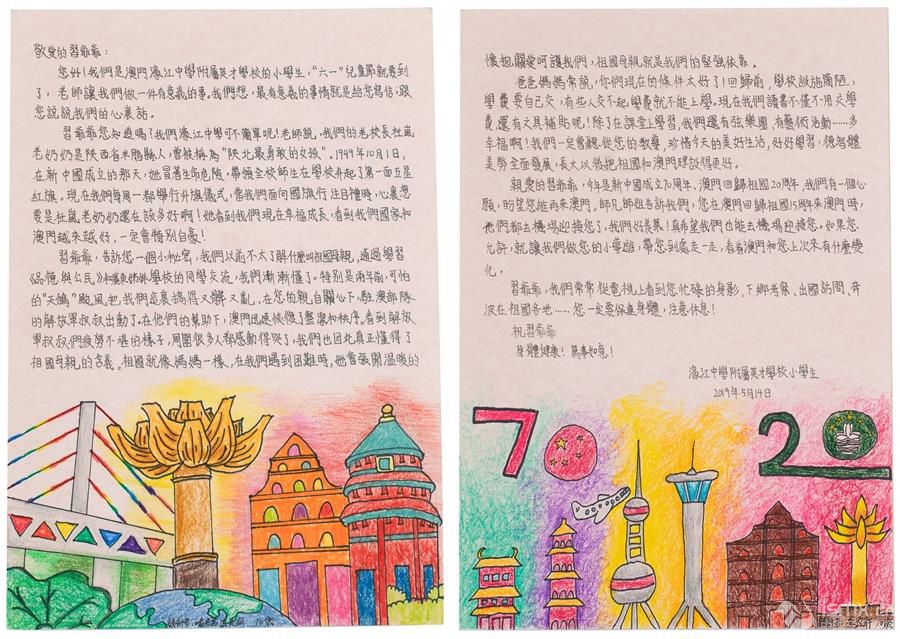 敬愛的習爺爺：
您好！我們是澳門濠江中學附屬英才學校的小學生，“六一”兒童節就要到
了，老師讓我們做一件有意義的事。我們想，最有意義的事情就是給您寫信，跟
您說說我們的心裏話。
習爺爺您知道嗎！我們濠江中學可不簡單呢！老師說，我們的老校長杜嵐
老奶奶是陝西省米脂縣人，曾被稱為“陝北最勇敢的女孩”。1949年10月1日，
在新中國成立的那天，她冒著生命危險，帶領全校師生在學校升起了第一面五星
紅旗。現在我們每周一都舉行升旗儀式，當我們面向國旗行注目禮時，心裏想
要是杜嵐老奶奶還在該多好啊！她看到我們現在幸福成長，看到我們國家和
澳門越來越好，一定會特別自豪！
習爺爺，告訴您一個小秘密，我們以前不太了解什麼叫祖國母親，通過學習
《品德與公民》和學校的同學交流，我們漸漸懂了。特別是兩年前，可怕
的“天鴿”颱風把我們這裏搞得又髒又亂，在您的親自關心下，駐澳部隊
的解放軍叔叔出動了。在他們的幫助下，澳門迅速恢復了整潔和秩序。看到解放
軍叔叔們疲勞不堪的樣子，周圍很多人都感動得哭了，我們也因此真正懂得了
祖國母親的含義。祖國就像媽媽一樣，在我們遇到困難時，她會張開溫暖的
懷抱關愛呵護我們，祖國母親就是我們的堅強依靠。
爸爸媽媽常說，你們現在的條件太好了！回歸前，學校設施簡陋，
學費要自己交，有些人交不起學費就不能上學。現在我們讀書不僅不用交學
費，還有文具補貼呢！除了在課堂上學習，我們還有弦樂團，有藝術活動……多
幸福啊！我們一定會聽從您的教導，珍惜今天的美好生活，好好學習，德智體
美勞全面發展，長大以後把祖國和澳門建設得更好。
親愛的習爺爺，今年是新中國成立70周年、澳門回歸祖國20周年，我們有一個心
願，盼望您能再來澳門。師兄師姐告訴我們，您在澳門回歸祖國15周年來澳門時，
他們都去機場迎接您了，我們好羨慕！真希望我們也能去機場迎接您。如果您
允許，就讓我們做您的小導遊，帶您到處走一走，看看澳門和您上次來有什麼變
化。
習爺爺，我們常常從電視上看到您忙碌的身影，下鄉考察、出國訪問、奔
波在祖國各地……您一定要保重身體，注意休息！
祝習爺爺
身體健康！萬事如意！
濠江中學附屬英才學校小學生
2019年5月14日
70
20
10歲